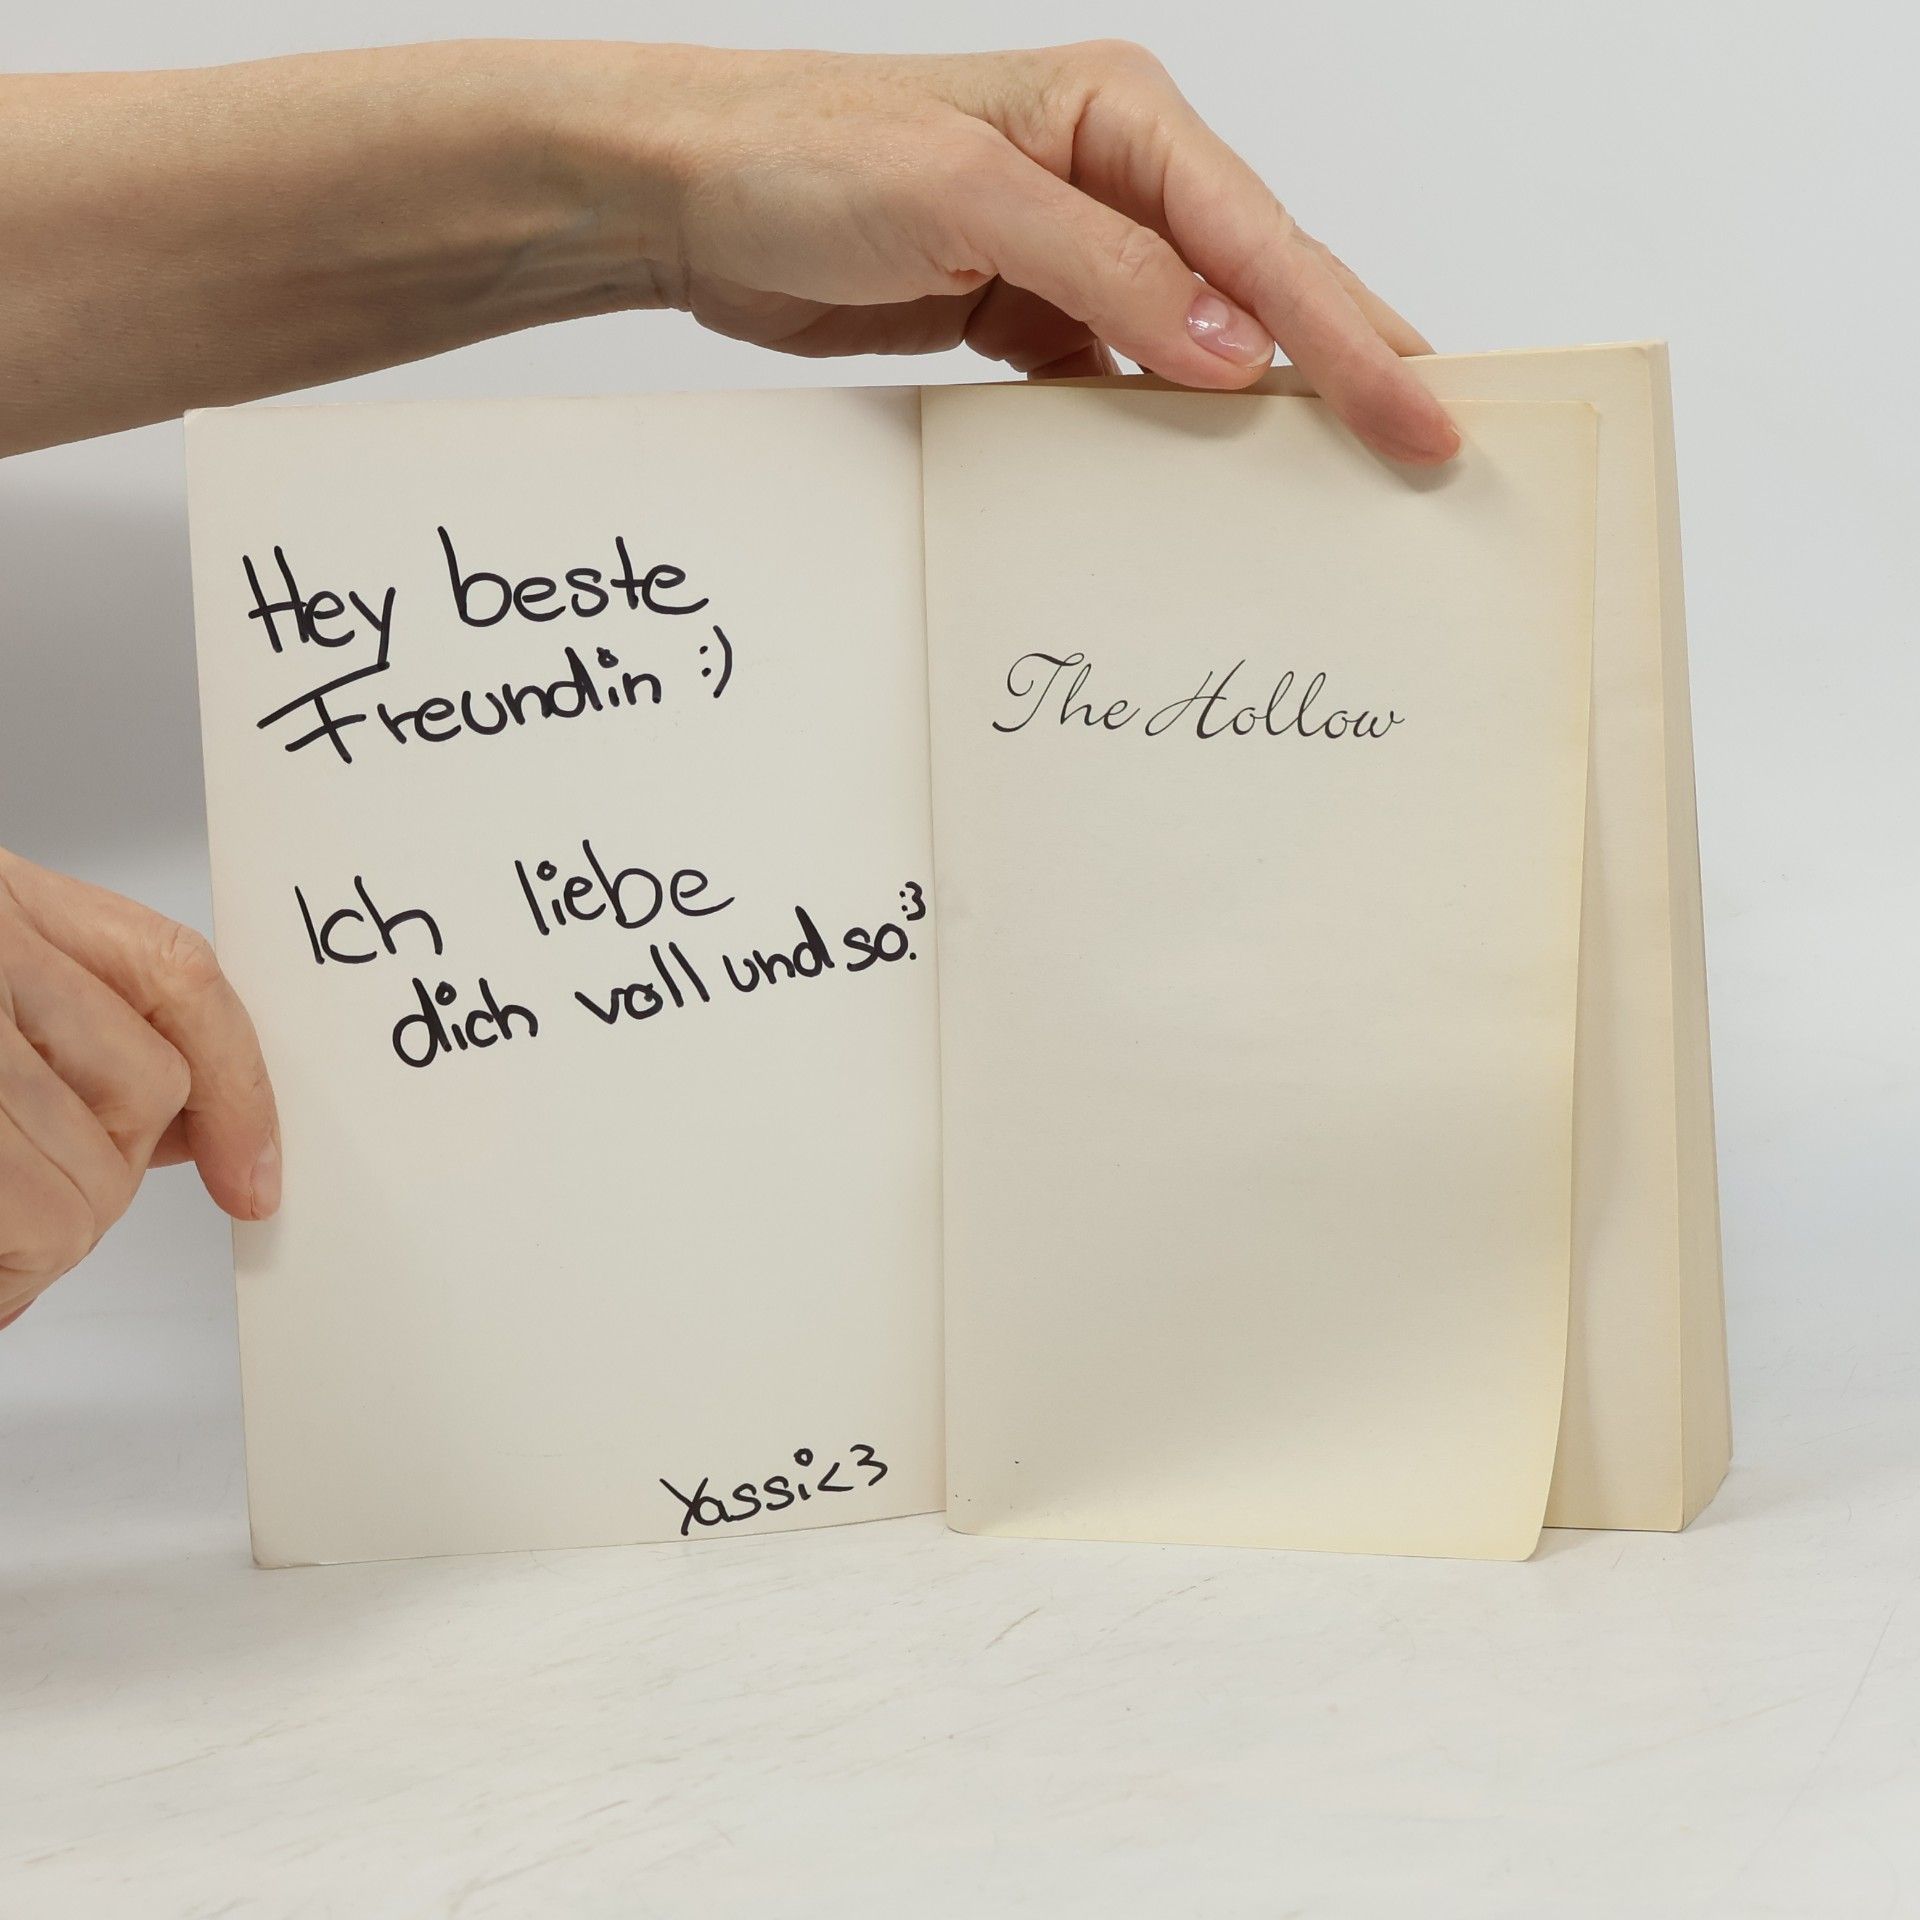 Hey beste
Freundin :)
Ich liebe
dich voll und so. :3
Yassi<3
The Hollow